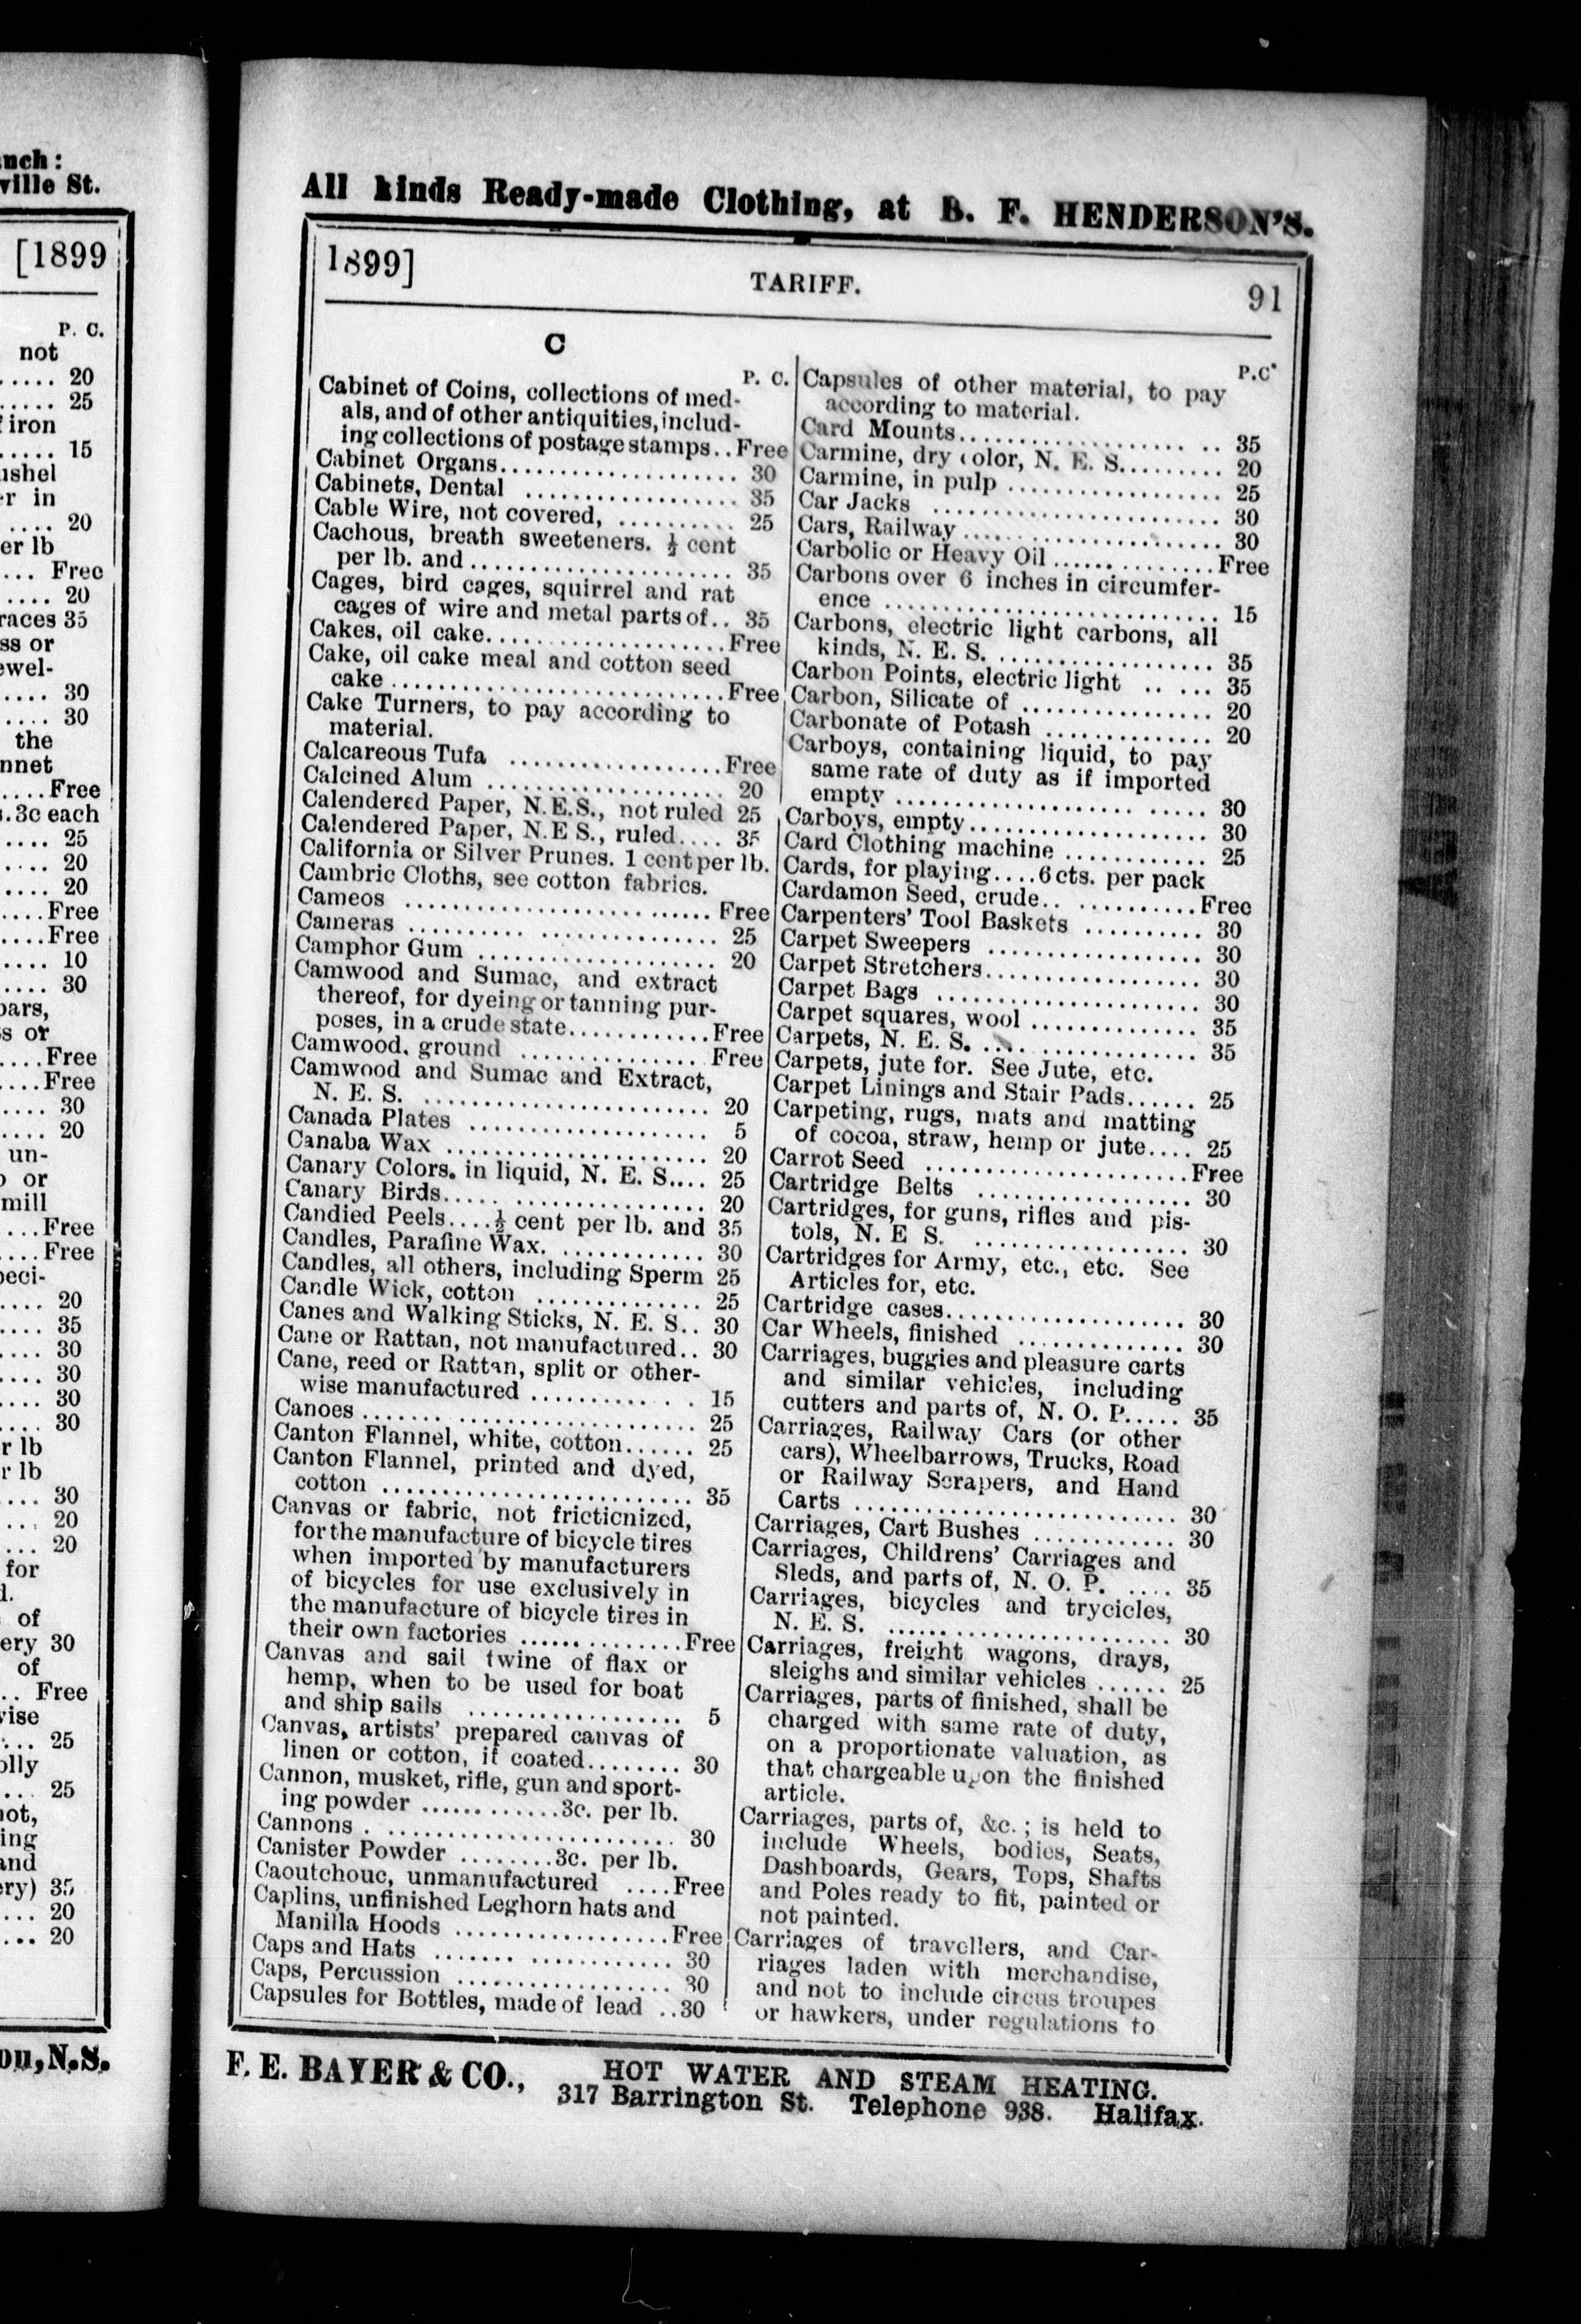 nch:
ville St.
[1899
P. C.
not
..... 20
..... 25
iron
..... 15
ushel
r in
.... 20
er lb
... Free
.... 20
races 35
ss or
ewel-
.... 30
.... 30
the
nnet
....Free
.3c each
.... 25
.... 20
.... 20
....Free
....Free
.... 10
.... 30
oars,
s or
....Free
....Free
.... 30
.... 20
un-
o or
mill
...Free
....Free
peci-
.... 20
.... 35
.... 30
.... 30
.... 30
.... 30
r lb
r lb
.... 30
... 20
... 20
for
of
ery 30
of
.. Free
vise
... 25
olly
... 25
not,
ing
and
ery) 35
... 20
... 20
on, N.S.
All kinds Ready-made Clothing, at B. F. HENDERSON'S.
1899]
TARIFF.
91
C
P. C.
Cabinet of Coins, collections of med-
als, and of other antiquities, includ-
ing collections of postage stamps..Free
Cabinet Organs.................. 30
Cabinets, Dental .................. 35
Cable Wire, not covered, .......... 25
Cachous, breath sweeteners. ½ cent
per lb. and ...................... 35
Cages, bird cages, squirrel and rat
cages of wire and metal parts of.. 35
Cakes, oil cake....................Free
Cake, oil cake meal and cotton seed
cake ............................Free
Cake Turners, to pay according to
material.
Calcareous Tufa ..................Free
Calcined Alum .................... 20
Calendered Paper, N.E.S., not ruled 25
Calendered Paper, N.E S., ruled.... 35
California or Silver Prunes. 1 cent per lb.
Cambric Cloths, see cotton fabrics.
Cameos .......................... Free
Cameras .......................... 25
Camphor Gum .................... 20
Camwood and Sumac, and extract
thereof, for dyeing or tanning pur-
poses, in a crude state............Free
Camwood, ground ................Free
Camwood and Sumac and Extract,
N. E. S. ........................ 20
Canada Plates .................... 5
Canaba Wax ...................... 20
Canary Colors, in liquid, N. E. S.... 25
Canary Birds...................... 20
Candied Peels....½ cent per lb. and 35
Candles, Parafine Wax. ............ 30
Candles, all others, including Sperm 25
Candle Wick, cotton .............. 25
Canes and Walking Sticks, N. E. S.. 30
Cane or Rattan, not manufactured.. 30
Cane, reed or Rattan, split or other-
wise manufactured .............. 15
Canoes ............................ 25
Canton Flannel, white, cotton...... 25
Canton Flannel, printed and dyed,
cotton .......................... 35
Canvas or fabric, not fricticnized,
for the manufacture of bicycle tires
when imported by manufacturers
of bicycles for use exclusively in
the manufacture of bicycle tires in
their own factories ..............Free
Canvas and sail twine of flax or
hemp, when to be used for boat
and ship sails .................. 5
Canvas, artists' prepared canvas of
linen or cotton, if coated........ 30
Cannon, musket, rifle, gun and sport-
ing powder ............3c. per lb.
Cannons .......................... 30
Canister Powder ........3c. per lb.
Caoutchouc, unmanufactured ....Free
Caplins, unfinished Leghorn hats and
Manilla Hoods ..................Free
Caps and Hats .................... 30
Caps, Percussion .................. 30
Capsules for Bottles, made of lead ..30
P.C
Capsules of other material, to pay
according to material.
Card Mounts...................... 35
Carmine, dry color, N. E. S......... 20
Carmine, in pulp .................. 25
Car Jacks ........................ 30
Cars, Railway ...................... 30
Carbolic or Heavy Oil ..............Free
Carbons over 6 inches in circumfer-
ence ............................ 15
Carbons, electric light carbons, all
kinds, N. E. S. .................. 35
Carbon Points, electric light ..... 35
Carbon, Silicate of ................ 20
Carbonate of Potash .............. 20
Carboys, containing liquid, to pay
same rate of duty as if imported
empty .......................... 30
Carboys, empty.................... 30
Card Clothing machine ............ 25
Cards, for playing....6 cts. per pack
Cardamon Seed, crude.. ..........Free
Carpenters' Tool Baskets .......... 30
Carpet Sweepers .................. 30
Carpet Stretchers.................. 30
Carpet Bags ...................... 30
Carpet squares, wool .............. 35
Carpets, N. E. S. .................. 35
Carpets, jute for. See Jute, etc.
Carpet Linings and Stair Pads...... 25
Carpeting, rugs, mats and matting
of cocoa, straw, hemp or jute.... 25
Carrot Seed ......................Free
Cartridge Belts .................. 30
Cartridges, for guns, rifles and pis-
tols, N. E S. .................. 30
Cartridges for Army, etc., etc. See
Articles for, etc.
Cartridge cases.................... 30
Car Wheels, finished .............. 30
Carriages, buggies and pleasure carts
and similar vehicles, including
cutters and parts of, N. O. P..... 35
Carriages, Railway Cars (or other
cars), Wheelbarrows, Trucks, Road
or Railway Scrapers, and Hand
Carts ............................ 30
Carriages, Cart Bushes ............ 30
Carriages, Childrens' Carriages and
Sleds, and parts of, N. O. P. .... 35
Carriages, bicycles and trycicles,
N. E. S. ........................ 30
Carriages, freight wagons, drays,
sleighs and similar vehicles ...... 25
Carriages, parts of finished, shall be
charged with same rate of duty,
on a proportionate valuation, as
that chargeable upon the finished
article.
Carriages, parts of, &c.; is held to
include Wheels, bodies, Seats,
Dashboards, Gears, Tops, Shafts
and Poles ready to fit, painted or
not painted.
Carriages of travellers, and Car-
riages laden with merchandise,
and not to include circus troupes
or hawkers, under regulations to
F. E. BAYER & CO., HOT WATER AND STEAM HEATING.
317 Barrington St. Telephone 938. Halifax.